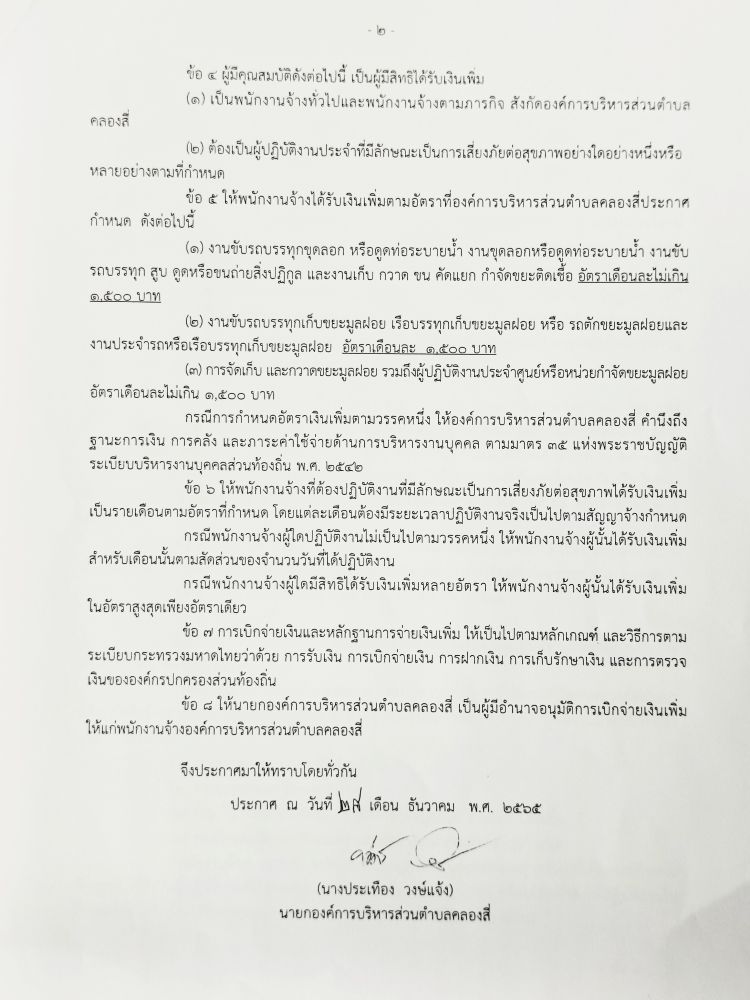 - ๒ -
ข้อ ๔ ผู้มีคุณสมบัติดังต่อไปนี้ เป็นผู้มีสิทธิได้รับเงินเพิ่ม
(๑) เป็นพนักงานจ้างทั่วไปและพนักงานจ้างตามภารกิจ สังกัดองค์การบริหารส่วนตำบล
คลองสี่
(๒) ต้องเป็นผู้ปฏิบัติงานประจำที่มีลักษณะเป็นการเสี่ยงภัยต่อสุขภาพอย่างใดอย่างหนึ่งหรือ
หลายอย่างตามที่กำหนด
ข้อ ๕ ให้พนักงานจ้างได้รับเงินเพิ่มตามอัตราที่องค์การบริหารส่วนตำบลคลองสี่ประกาศ
กำหนด ดังต่อไปนี้
(๑) งานขับรถบรรทุกขุดลอก หรือดูดท่อระบายน้ำ งานขุดลอกหรือดูดท่อระบายน้ำ งานขับ
รถบรรทุก สูบ ดูดหรือขนถ่ายสิ่งปฏิกูล และงานเก็บ กวาด ขน คัดแยก กำจัดขยะติดเชื้อ อัตราเดือนละไม่เกิน
๑,๕๐๐ บาท
(๒) งานขับรถบรรทุกเก็บขยะมูลฝอย เรือบรรทุกเก็บขยะมูลฝอย หรือ รถตักขยะมูลฝอยและ
งานประจำรถหรือเรือบรรทุกเก็บขยะมูลฝอย อัตราเดือนละ ๑,๕๐๐ บาท
(๓) การจัดเก็บ และกวาดขยะมูลฝอย รวมถึงผู้ปฏิบัติงานประจำศูนย์หรือหน่วยกำจัดขยะมูลฝอย
อัตราเดือนละไม่เกิน ๑,๕๐๐ บาท
กรณีการกำหนดอัตราเงินเพิ่มตามวรรคหนึ่ง ให้องค์การบริหารส่วนตำบลคลองสี่ คำนึงถึง
ฐานะการเงิน การคลัง และภาระค่าใช้จ่ายด้านการบริหารงานบุคคล ตามมาตร ๓๕ แห่งพระราชบัญญัติ
ระเบียบบริหารงานบุคคลส่วนท้องถิ่น พ.ศ. ๒๕๔๒
ข้อ ๖ ให้พนักงานจ้างที่ต้องปฏิบัติงานที่มีลักษณะเป็นการเสี่ยงภัยต่อสุขภาพได้รับเงินเพิ่ม
เป็นรายเดือนตามอัตราที่กำหนด โดยแต่ละเดือนต้องมีระยะเวลาปฏิบัติงานจริงเป็นไปตามสัญญาจ้างกำหนด
กรณีพนักงานจ้างผู้ใดปฏิบัติงานไม่เป็นไปตามวรรคหนึ่ง ให้พนักงานจ้างผู้นั้นได้รับเงินเพิ่ม
สำหรับเดือนนั้นตามสัดส่วนของจำนวนวันที่ได้ปฏิบัติงาน
กรณีพนักงานจ้างผู้ใดมีสิทธิได้รับเงินเพิ่มหลายอัตรา ให้พนักงานจ้างผู้นั้นได้รับเงินเพิ่ม
ในอัตราสูงสุดเพียงอัตราเดียว
ข้อ ๗ การเบิกจ่ายเงินและหลักฐานการจ่ายเงินเพิ่ม ให้เป็นไปตามหลักเกณฑ์ และวิธีการตาม
ระเบียบกระทรวงมหาดไทยว่าด้วย การรับเงิน การเบิกจ่ายเงิน การฝากเงิน การเก็บรักษาเงิน และการตรวจ
เงินขององค์กรปกครองส่วนท้องถิ่น
ข้อ ๘ ให้นายกองค์การบริหารส่วนตำบลคลองสี่ เป็นผู้มีอำนาจอนุมัติการเบิกจ่ายเงินเพิ่ม
ให้แก่พนักงานจ้างองค์การบริหารส่วนตำบลคลองสี่
จึงประกาศมาให้ทราบโดยทั่วกัน
ประกาศ ณ วันที่ ๒๙ เดือน ธันวาคม พ.ศ. ๒๕๖๕
(นางประเทือง วงษ์แจ้ง)
นายกองค์การบริหารส่วนตำบลคลองสี่